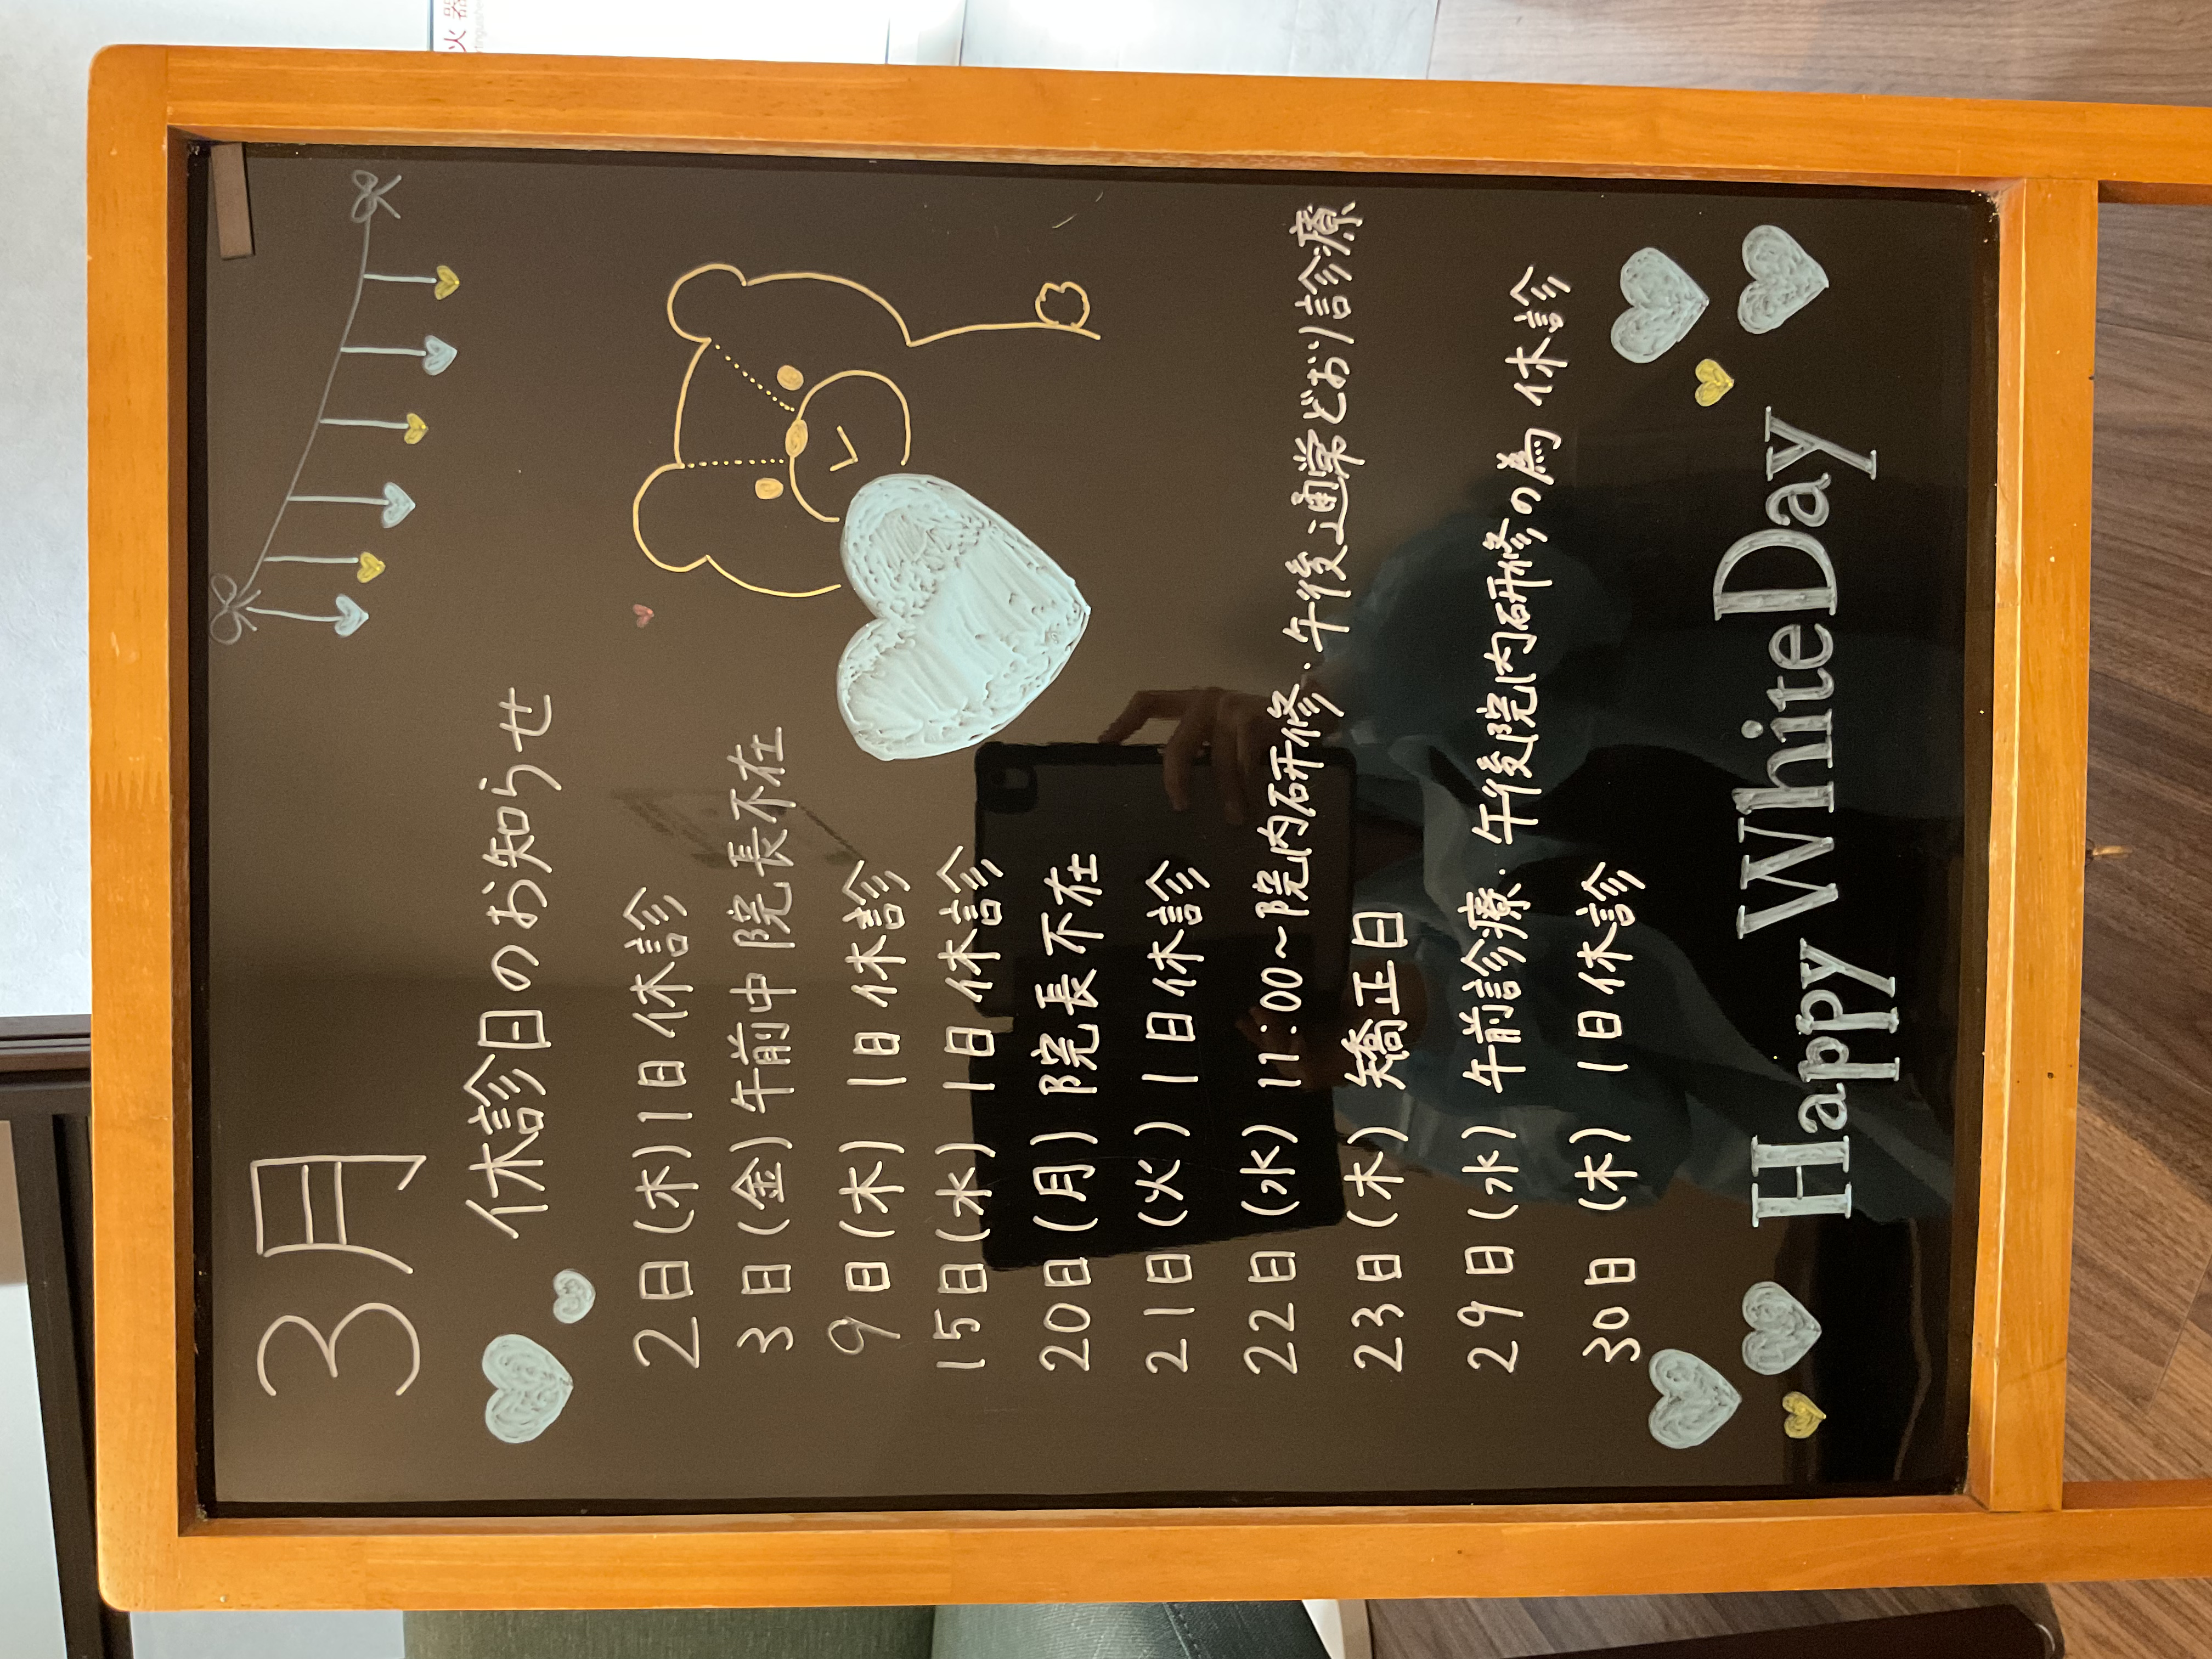 火器
3月
休診日のお知らせ
2日(木)1日休診
3日(金)午前中院長不在
9日(木) 1日休診
15日(水) 1日休診
20日(月) 院長不在
21日(火) 1日休診
22日(水) 11:00〜院内研修・午後通常どおり診療
23日(木) 矯正日
29日(水) 午前診療・午後院内研修の為 休診
30日(木) 1日休診
Happy WhiteDay